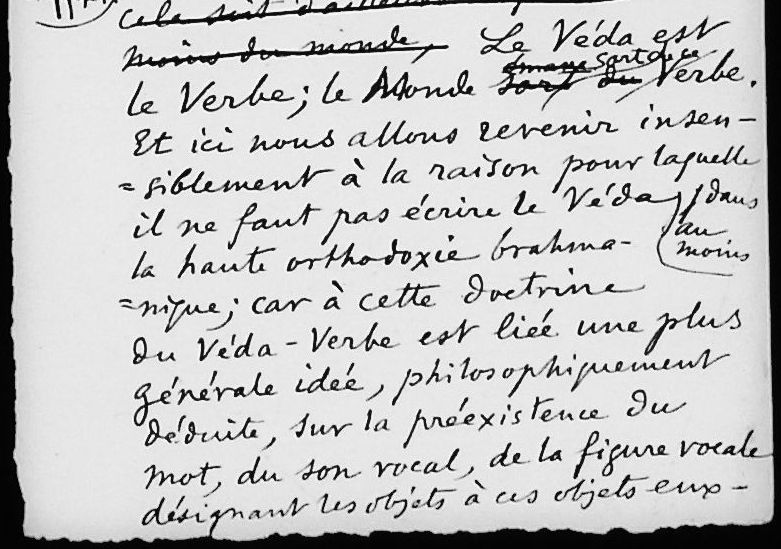 cela soit d'ailleurs
moins du monde, Le Véda est
le Verbe; le Monde sort de ce Verbe.
Et ici nous allons revenir insen-
=siblement à la raison pour laquelle
il ne faut pas écrire le Véda, dans
au
moins
la haute orthodoxie brahma-
=nique; car à cette doctrine
du Véda-Verbe est liée une plus
générale idée, philosophiquement
déduite, sur la préexistence du
mot, du son vocal, de la figure vocale
désignant les objets à ces objets eux-